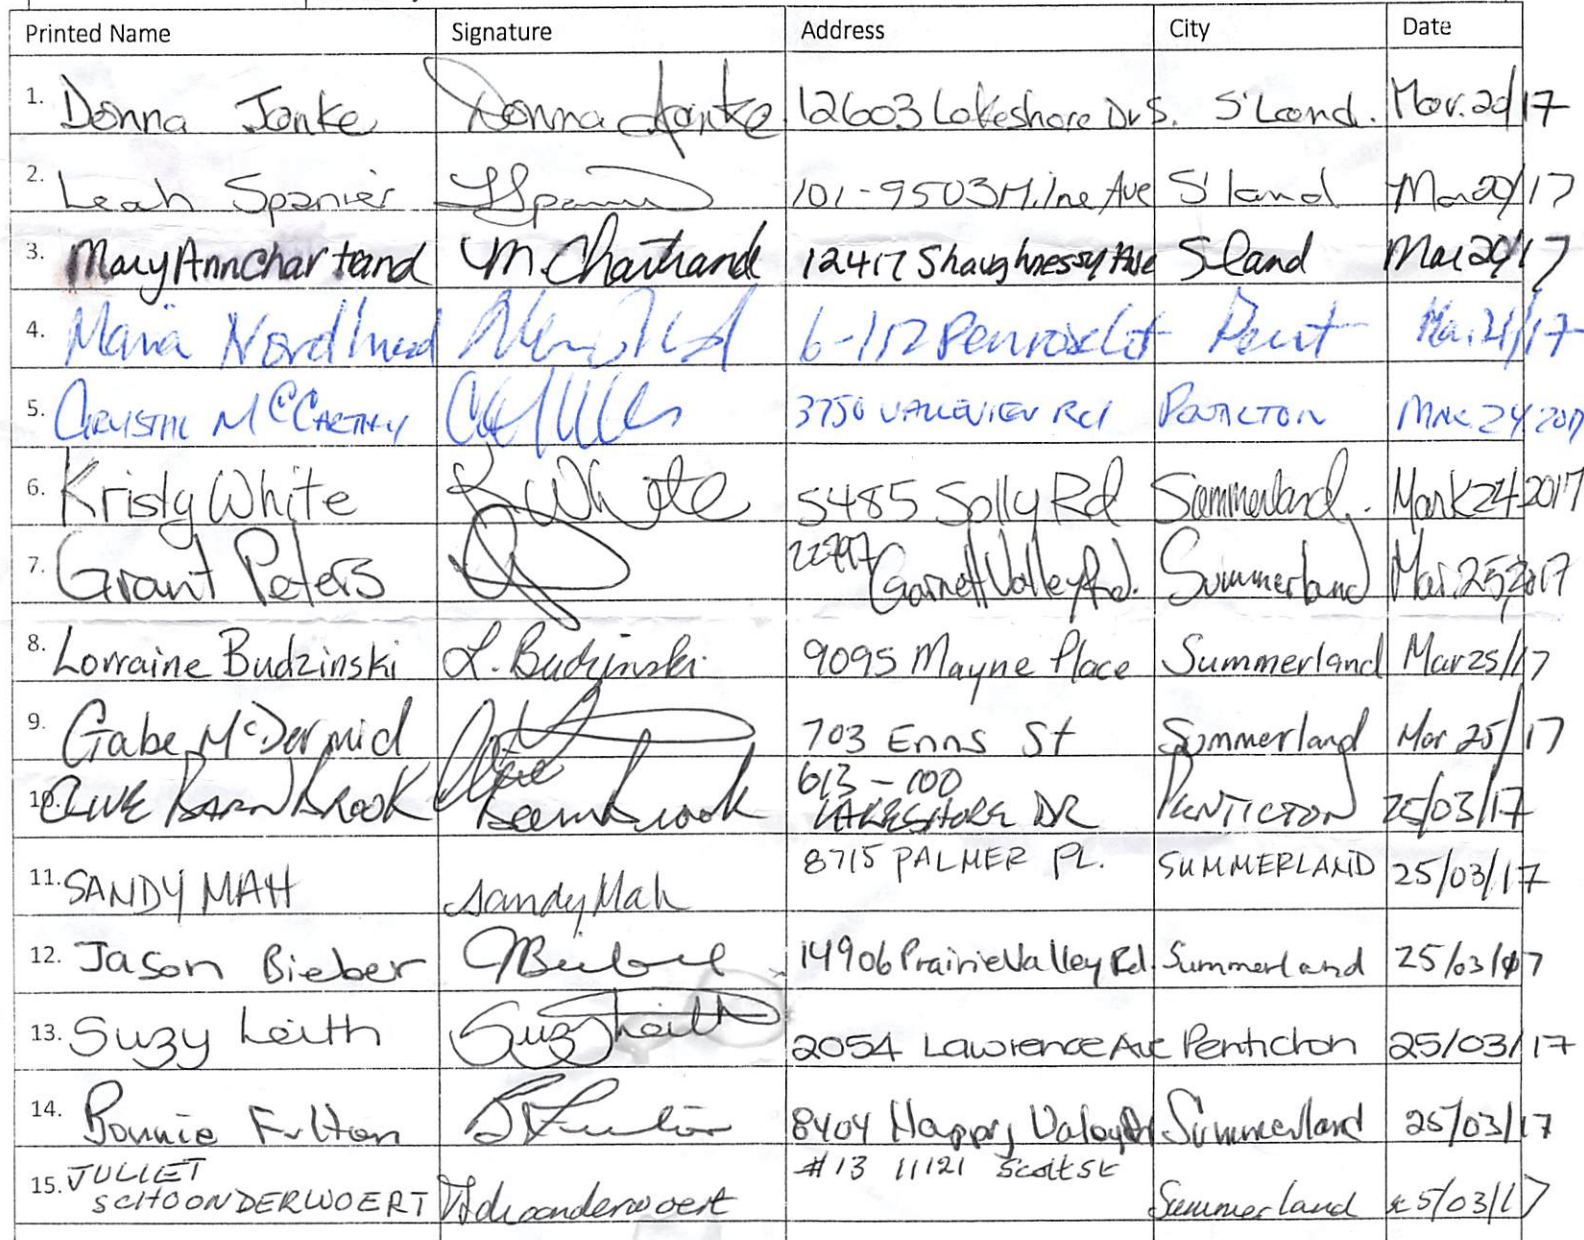 Printed Name Signature Address City Date
1. Donna Janke Donna Janke 12603 Lakeshore Dr S. S'Land. Mar. 20/17
2. Leah Spanier LSpanier 101-9503 Milne Ave S'land Mar 20/17
3. Mary Ann Chartrand M. Chartrand 12417 Shaughnessy Ave Sland Mar 20/17
4. Maria Nordlund 6-112 Penrose Crt Pent Mar. 21/17
5. McCarthy 3750 VALLEYVIEW Rd PENTICTON MAR. 24 2017
6. Kristy White K White 5485 Solly Rd Summerland. March 24 2017
7. Grant Peters 22797 Garnett Valley Rd. Summerland Mar. 25, 2017
8. Lorraine Budzinski L. Budzinski 9095 Mayne Place Summerland Mar 25/17
9. Gabe McDermid 703 Enns St Summerland Mar 25/17
10. CLIVE BARNBROOK Clive Barnbrook 613 - 100
LAKESHORE DR PENTICTON 25/03/17
11. SANDY MAH Sandy Mah 8715 PALMER PL. SUMMERLAND 25/03/17
12. Jason Bieber JBieber 14906 Prairie Valley Rd. Summerland 25/03/17
13. Suzy Leith Suzy Leith 2054 Lawrence Ave Penticton 25/03/17
14. Bonnie Fulton B Fulton 8404 Happy Valey Rd Summerland 25/03/17
15. JULIET
SCHOONDERWOERT JSchoonderwoert #13 11121 Scott St Summerland 25/03/17